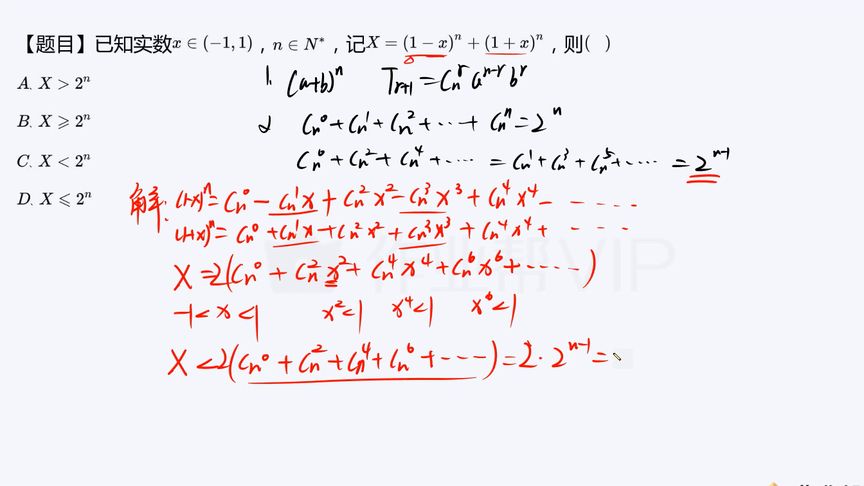 【题目】已知实数x∈(-1,1)，n∈N*，记X=(1-x)ⁿ+(1+x)ⁿ，则( )
A. X>2ⁿ
B. X⩾2ⁿ
C. X<2ⁿ
D. X⩽2ⁿ
1. (a+b)ⁿ T_{r+1}=C_n^r a^{n-r} b^r
2 C_n^0+C_n^1+C_n^2+…+C_n^n=2^n
C_n^0+C_n^2+C_n^4+…=C_n^1+C_n^3+C_n^5+…=2^{n-1}
解: (1-x)^n=C_n^0-C_n^1x+C_n^2x^2-C_n^3x^3+C_n^4x^4-……
(1+x)^n=C_n^0+C_n^1x+C_n^2x^2+C_n^3x^3+C_n^4x^4+……
X=2(C_n^0+C_n^2x^2+C_n^4x^4+C_n^6x^6+……)
-1<x<1 x^2<1 x^4<1 x^6<1
X<2(C_n^0+C_n^2+C_n^4+C_n^6+…)=2·2^{n-1}=
作业帮VIP